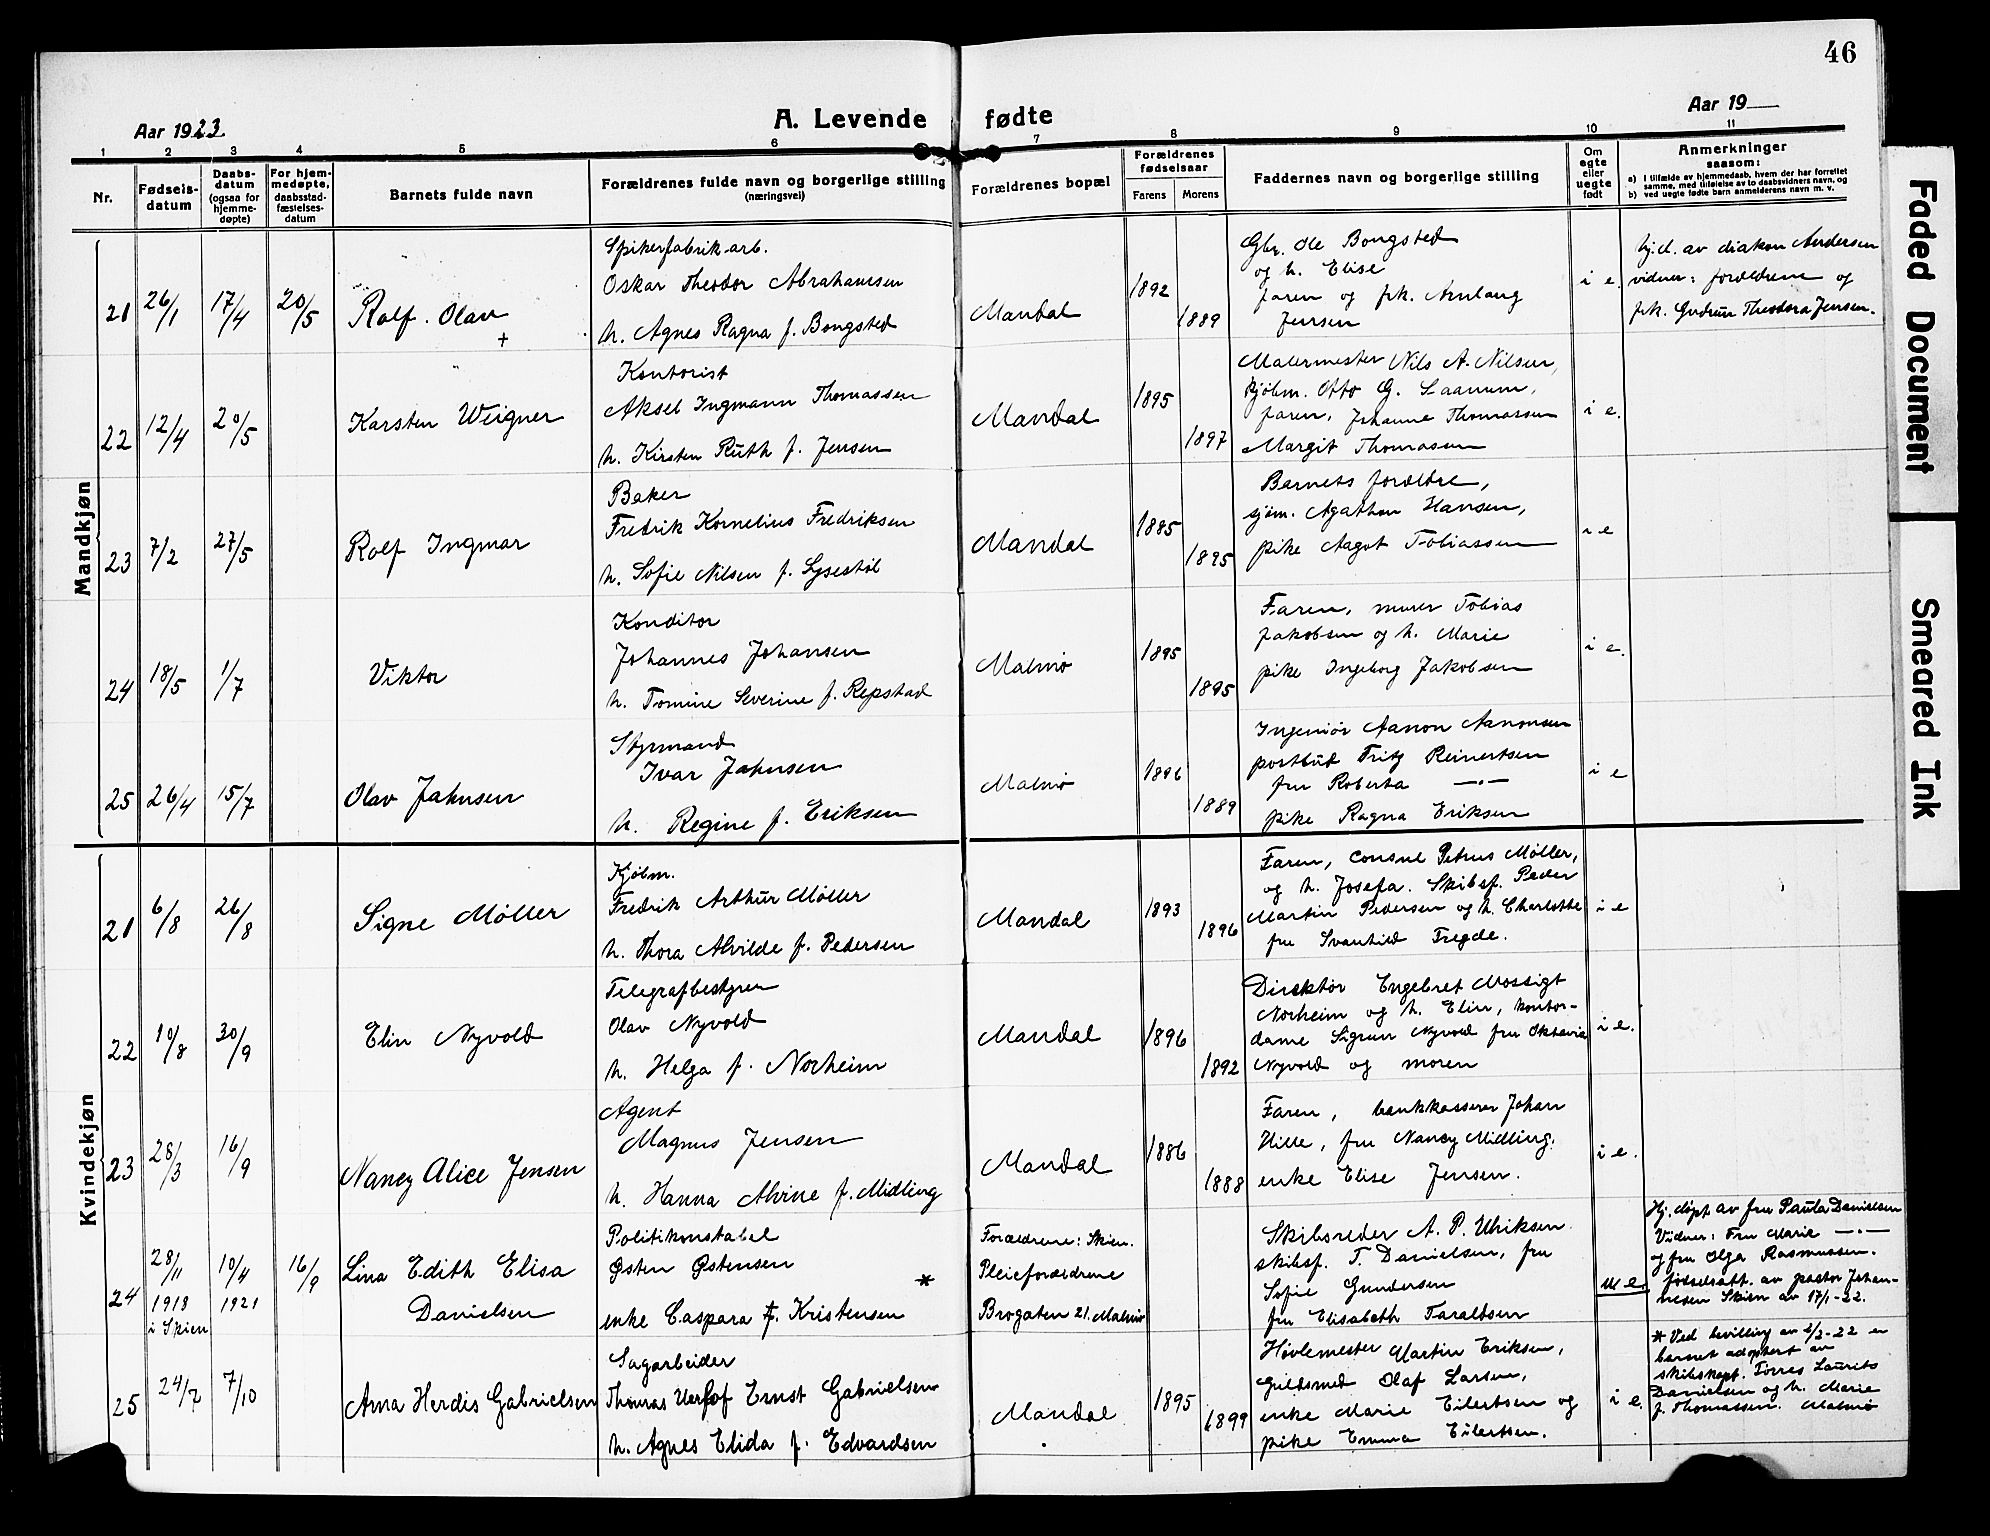 46
Aar 1923
A. Levende fødte
Aar 19
1 2 3 4 5 6 7 8 9 10 11
Nr.
Fødsels-
datum
Daabs-
datum
(ogsaa for
hjemme-
døpte)
For hjem-
medøpte,
daabsstad-
fæstelses-
datum
Barnets fulde navn
Forældrenes fulde navn og borgerlige stilling
(næringsvei)
Forældrenes bopæl
Forældrenes
fødselsaar
Farens Morens
Faddernes navn og borgerlige stilling
Om
egte
eller
uegte
født
Anmerkninger
saasom:
a) I tilfælde av hjemmedaab, hvem der har forrettet
samme, med tilføielse av to daabsvidners navn, og
b) ved uegte fødte barn anmelderens navn m. v.
Mandkjøn
21 26/1 17/4 20/5
Rolf Olav
+
Spikerfabrik.arb.
Oskar Theodor Abrahamsen
h. Agnes Ragna f. Bongsted
Mandal
1892
1889
Gbr. Ole Bongsted
og h. Elise
faren og frk. Arnlaug
Jensen
i e.
Hj.d. av diakon Andersen
vidner: forældrene og
frk. Gudrun Theodora Jensen.
22 12/4 20/5
Karsten Weigner
Kontorist
Aksel Ingmann Thomassen
h. Kirsten Ruth f. Jensen
Mandal
1895
1897
Malermester Nils A. Nilsen,
kjøbm. Otto G. Saanum,
faren, Johanne Thomassen
Margit Thomassen
i e.
23 7/2 27/5
Rolf Ingmar
Baker
Fredrik Kornelius Fredriksen
h. Sofie Nilsen f. Lysestøl
Mandal
1885
1895
Barnets forældre,
sjøm. Agathon Hansen,
pike Aagot Tobiassen
i e
24 18/5 1/7
Viktor
Konditor
Johannes Johansen
h. Tomine Severine f. Repstad
Malmø
1895
1895
Faren, murer Tobias
Jakobsen og h. Marie
pike Ingeborg Jakobsen
i e.
25 26/4 15/7
Olav Jahnsen
Styrmand
Ivar Jahnsen
h. Regine f. Eriksen
Malmø
1896
1889
Ingeniør Aanon Aanonsen
postbud Fritz Reinertsen
fru Roberta —"—
pike Ragna Eriksen
i e
Kvindekjøn
21 6/8 26/8
Signe Møller
Kjøbm.
Fredrik Arthur Møller
h. Thora Alvilde f. Pedersen
Mandal
1893
1896
Faren, consul Petrus Møller,
og h. Josefa. Skibsf. Peder
Martin Pedersen og h. Charlotte
fru Svanhild Fregde.
i e
22 10/8 30/9
Elin Nyvold
Telegrafbestyrer
Olav Nyvold
h. Helga f. Norheim
Mandal
1896
1892
Direktør Engebret Mossigt
Norheim og h. Elin, kontor-
dame Sigrun Nyvold fru Oktavia
Nyvold og moren
i e.
23 28/3 16/9
Nancy Alice Jensen
Agent
Magnus Jensen
h. Hanna Alvine f. Midling
Mandal
1886
1888
Faren, bankkasserer Johan
Hille, fru Nancy Midling.
enke Elise Jensen.
i e.
24 28/11 1918 i Skien 10/4 1921 16/9
Lina Edith Elisa
Danielsen
Politikonstabel
Østen Østensen *
enke Caspara f. Kristensen
Forældrene: Skien.
Pleieforældrene
Brogaten 21. Malmø
Skibsreder A. P. Ulriksen
skibsf. T. Danielsen, fru
Sofie Gundersen
fru Elisabeth Taraldsen
u e.
Hj. døpt av fru Paula Danielsen
Vidner: Fru Marie —"—
og fru Olga Rasmussen.
fødselsatt. av pastor Johan-
nesen Skien av 17/1-22.
25 24/7 7/10
Arna Herdis Gabrielsen
Sagarbeider
Thomas Ernst Gabrielsen
h. Agnes Elida f. Edvardsen
Mandal
1895
1899
Høvlemester Martin Eriksen,
Guldsmed Olaf Larsen,
enke Marie Eilertsen og
pike Emma Eilertsen.
i e.
* Ved bevilling av 2/2-22 er
barnet adoptert av
skibskapt. Torres Laurits
Danielsen og h. Marie
f. Thomassen. Malmø
Faded Document
Smeared Ink